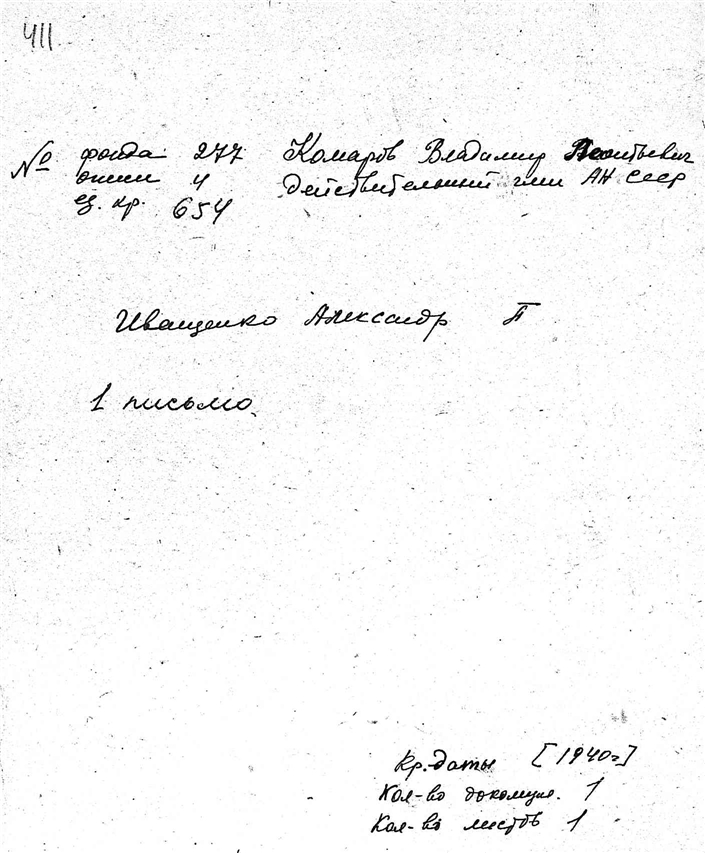 411
№ фонда 277 Комаров Владимир Леонтьевич
описи 4 Действительный член АН СССР
ед. хр. 654
Иващенко Александр П
1 письмо.
Кр. даты [1940г]
Кол-во докумен. 1
Кол-во листов 1